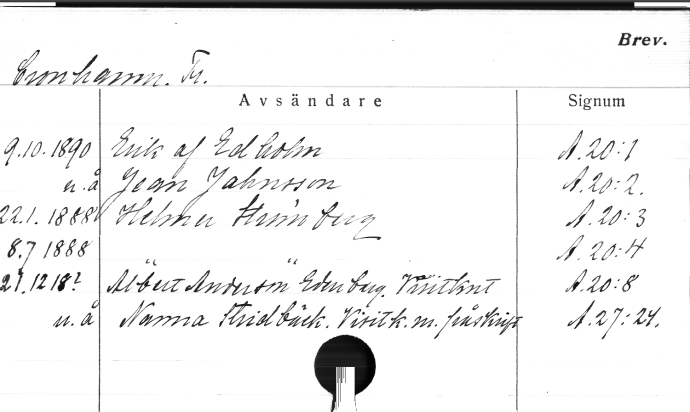 Brev.
Cronhamn. Fr.
Avsändare Signum
9.10.1890 Erik af Edholm A.20:1
u.å Jean Jahnsson A.20:2.
22.1.1888 Helmer Strömberg A.20:3
8.7 1888 " A.20:4
21.12 18? Albert Anderson Edenberg. Visitkort A.20:8
u.å Nanna Stridbäck. Visitk. m. påskrift A.27:24.